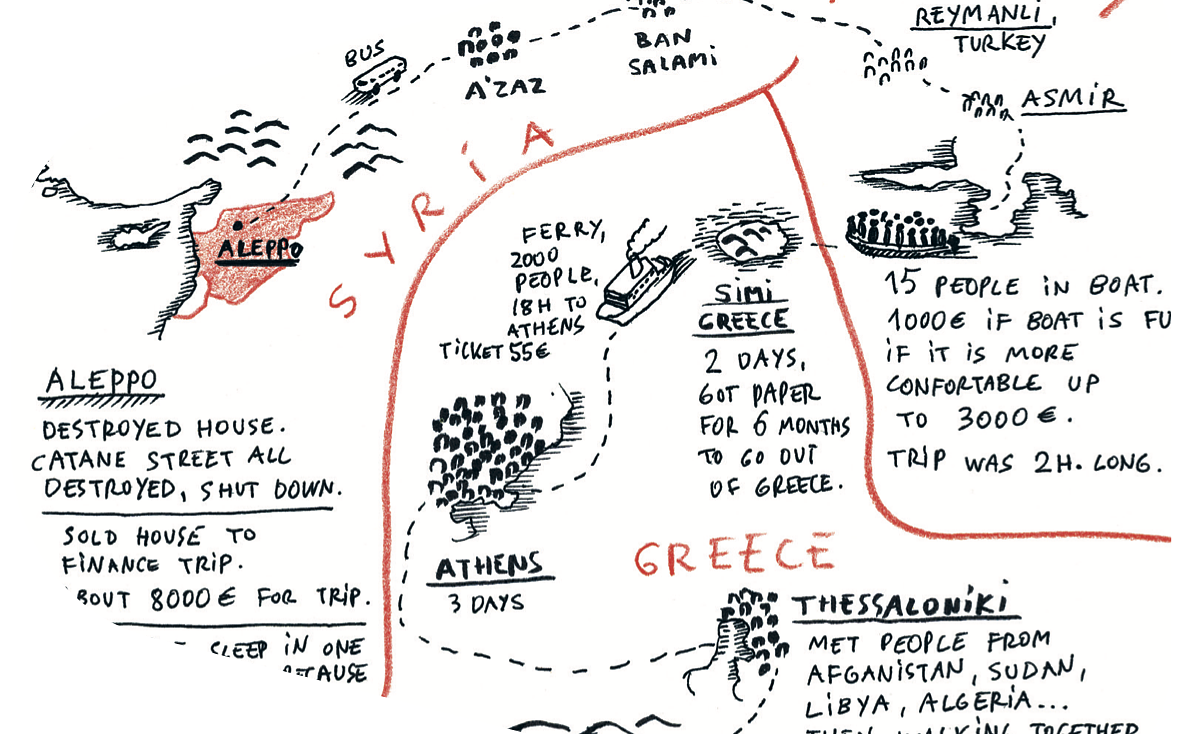 REYMANLI,
TURKEY
BUS
A'ZAZ
BAN
SALAMI
ASMIR
SYRIA
ALEPPO
FERRY,
2000
PEOPLE,
18H TO
ATHENS
TICKET 55€
SIMI
GREECE
2 DAYS,
GOT PAPER
FOR 6 MONTHS
TO GO OUT
OF GREECE.
15 PEOPLE IN BOAT.
1000€ IF BOAT IS FU
IF IT IS MORE
CONFORTABLE UP
TO 3000€.
TRIP WAS 2H. LONG.
ALEPPO
DESTROYED HOUSE.
CATANE STREET ALL
DESTROYED, SHUT DOWN.
SOLD HOUSE TO
FINANCE TRIP.
BOUT 8000€ FOR TRIP.
SLEEP IN ONE
ATHENS
3 DAYS
GREECE
THESSALONIKI
MET PEOPLE FROM
AFGANISTAN, SUDAN,
LIBYA, ALGERIA...
THEN WALKING TOGETHER